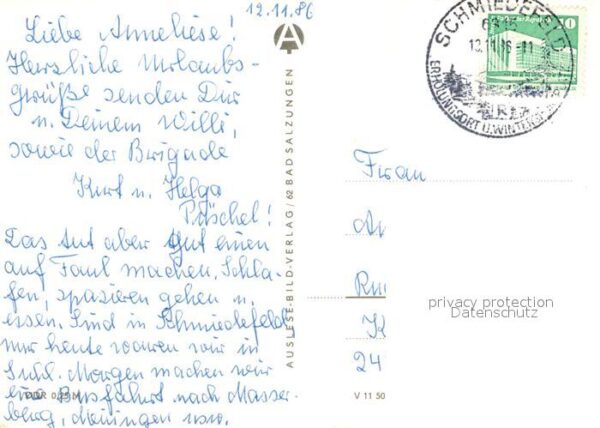 12.11.86
Liebe Anneliese!
Herzliche Urlaubs-
grüße senden Dir
u. Deinem Willi,
sowie der Brigade
Kurt u. Helga
Püschel!
Das tut aber gut einen
auf Faul machen, Schla-
fen, spazieren gehen u.
essen. Sind in Schmiedefeld,
nur heute waren wir in
Suhl. Morgen machen wir
eine Busfahrt nach Masser-
berg, Meiningen usw.
DDR 0,25 M
AUSLESE-BILD-VERLAG / 62 BAD SALZUNGEN
A
SCHMIEDEFELD
13.11.86-11
ERHOLUNGSORT U. WINTERSP
10
Frau
An
Ru
K
24
privacy protection
Datenschutz
V 11 50